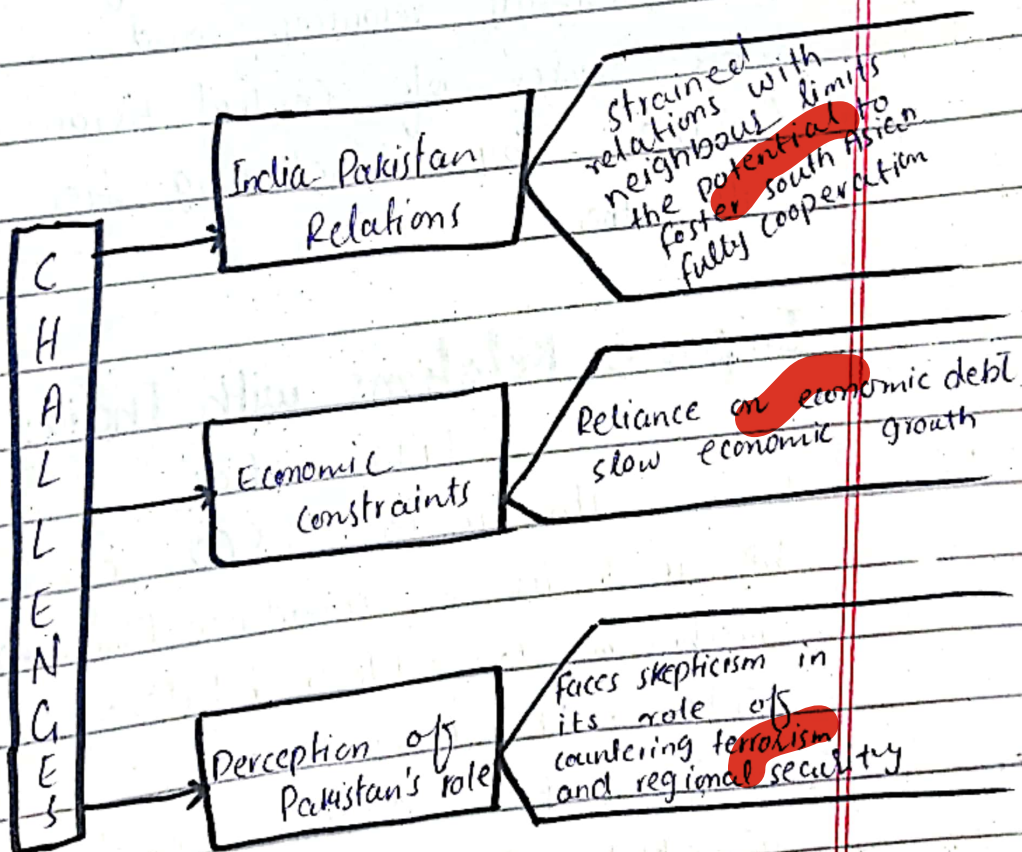 CHALLENGES
India-Pakistan
Relations
strained
relations with
neighbous limits
the potential to
foster south Asian
fully cooperation
Economic
Constraints
Reliance on economic debt
slow economic growth
Perception off
Pakistan's role
Faces skepticism in
its role off
countering terrorism
and regional security